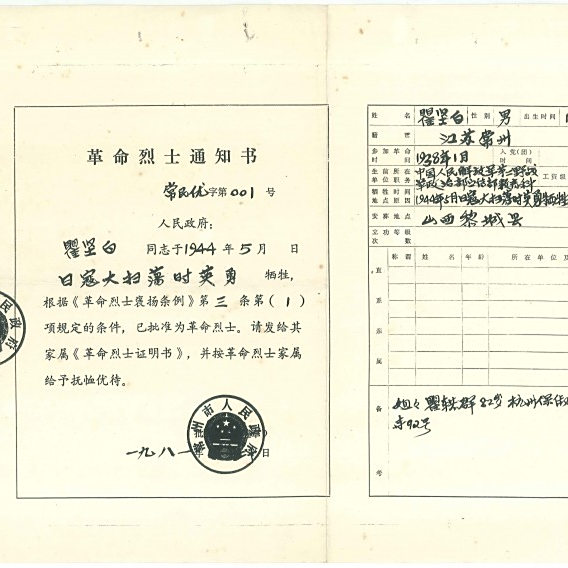 革命烈士通知书
常民优字第001号
人民政府：
瞿坚白 同志于1944年5月 日
日寇大扫荡时英勇 牺牲，
根据《革命烈士褒扬条例》第三条第（1）
项规定的条件，已批准为革命烈士。请发给其
家属《革命烈士证明书》，并按革命烈士家属
给予抚恤优待。
常州市人民政府
一九八一 日
民政府
姓名 瞿坚白 性别 男 出生时间
籍贯 江苏常州
参加革命时间 1938年1月 入党(团)时间
生前所在单位职务 中国人民解放军第二野战 工资级
牺牲时间地点原因 1944年5月日寇大扫荡时英勇牺牲
安葬地点 山西黎城县
立功等级次数
直系亲属
称谓 姓名 年龄 所在单位及
备考
姐姐 瞿轶群 82岁 杭州保俶
92号